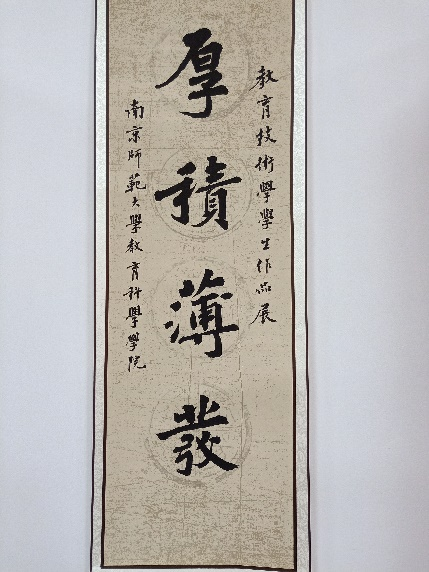 教育技術學學生作品展
厚積薄發
南京師範大學教育科學學院